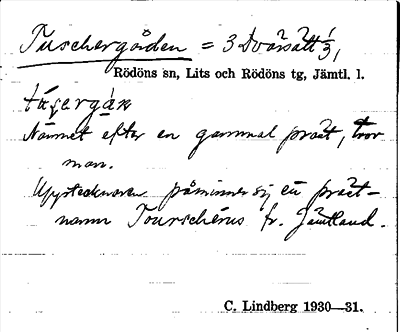 Tuschergården = 3 Dvärsätt 1/3,
Rödöns sn, Lits och Rödöns tg, Jämtl. l.
túsɛrgàɴ
Namnet efter en gammal präst, tror
man.
Upptecknaren påminner sig en präst-
namn Tourscherus fr. Jämtland.
C. Lindberg 1930—31.